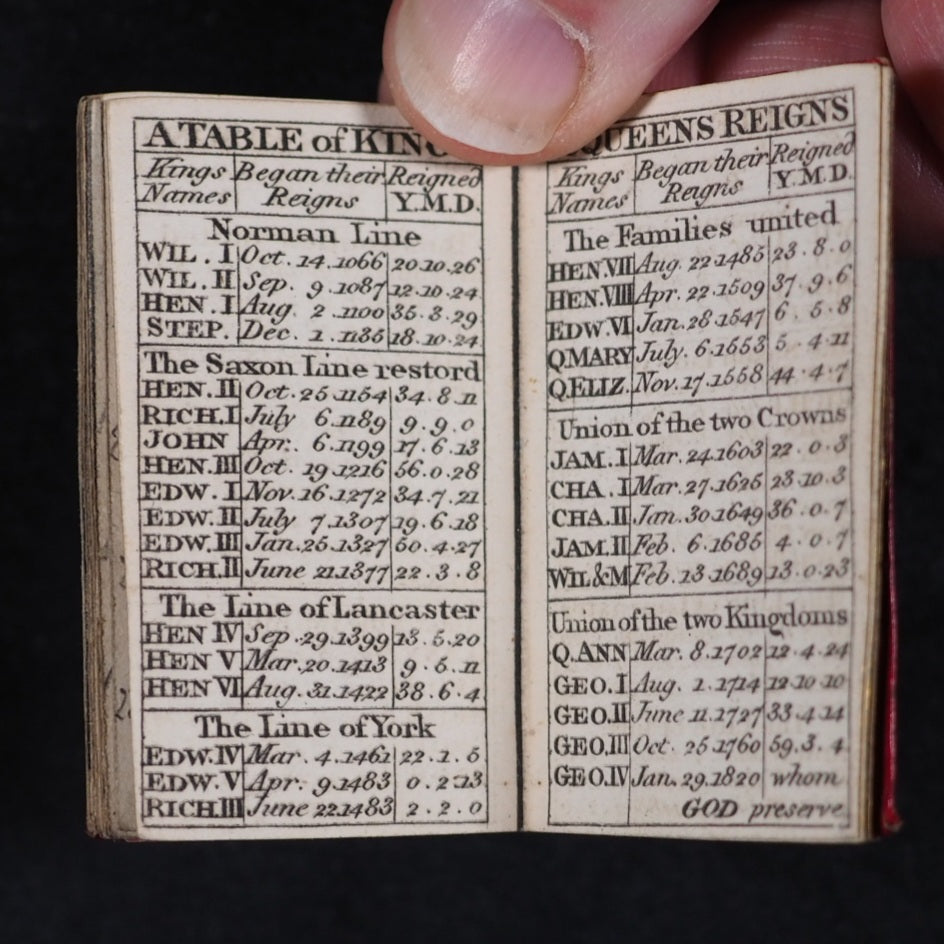 A TABLE of KING
Kings Names Began their Reigns Reigned Y.M.D.
Norman Line
WIL. I Oct. 14.1066 20.10.26
WIL. II Sep. 9.1087 12.10.24
HEN. I Aug. 2.1100 35.3.29
STEP. Dec. 1.1135 18.10.24
The Saxon Line restord
HEN. II Oct. 25.1154 34.8.11
RICH. I July 6.1189 9.9.0
JOHN Apr. 6.1199 17.6.13
HEN. III Oct. 19.1216 56.0.28
EDW. I Nov. 16.1272 34.7.21
EDW. II July 7.1307 19.6.18
EDW. III Jan. 25.1327 50.4.27
RICH. II June 21.1377 22.3.8
The Line of Lancaster
HEN IV Sep. 29.1399 13.5.20
HEN V Mar. 20.1413 9.5.11
HEN VI Aug. 31.1422 38.6.4
The Line of York
EDW. IV Mar. 4.1461 22.1.5
EDW. V Apr. 9.1483 0.2.13
RICH. III June 22.1483 2.2.0
QUEENS REIGNS
Kings Names Began their Reigns Reigned Y.M.D.
The Families united
HEN. VII Aug. 22.1485 23.8.0
HEN. VIII Apr. 22.1509 37.9.6
EDW. VI Jan. 28.1547 6.5.8
Q.MARY July. 6.1553 5.4.11
Q.ELIZ. Nov. 17.1558 44.4.7
Union of the two Crowns
JAM. I Mar. 24.1603 22.0.3
CHA. I Mar. 27.1625 23.10.3
CHA. II Jan. 30.1649 36.0.7
JAM. II Feb. 6.1685 4.0.7
WIL&M Feb. 13.1689 13.0.23
Union of the two Kingdoms
Q.ANN Mar. 8.1702 12.4.24
GEO. I Aug. 1.1714 12.10.10
GEO. II June 11.1727 33.4.14
GEO. III Oct. 25.1760 59.3.4
GEO. IV Jan. 29.1820 whom
GOD preserve